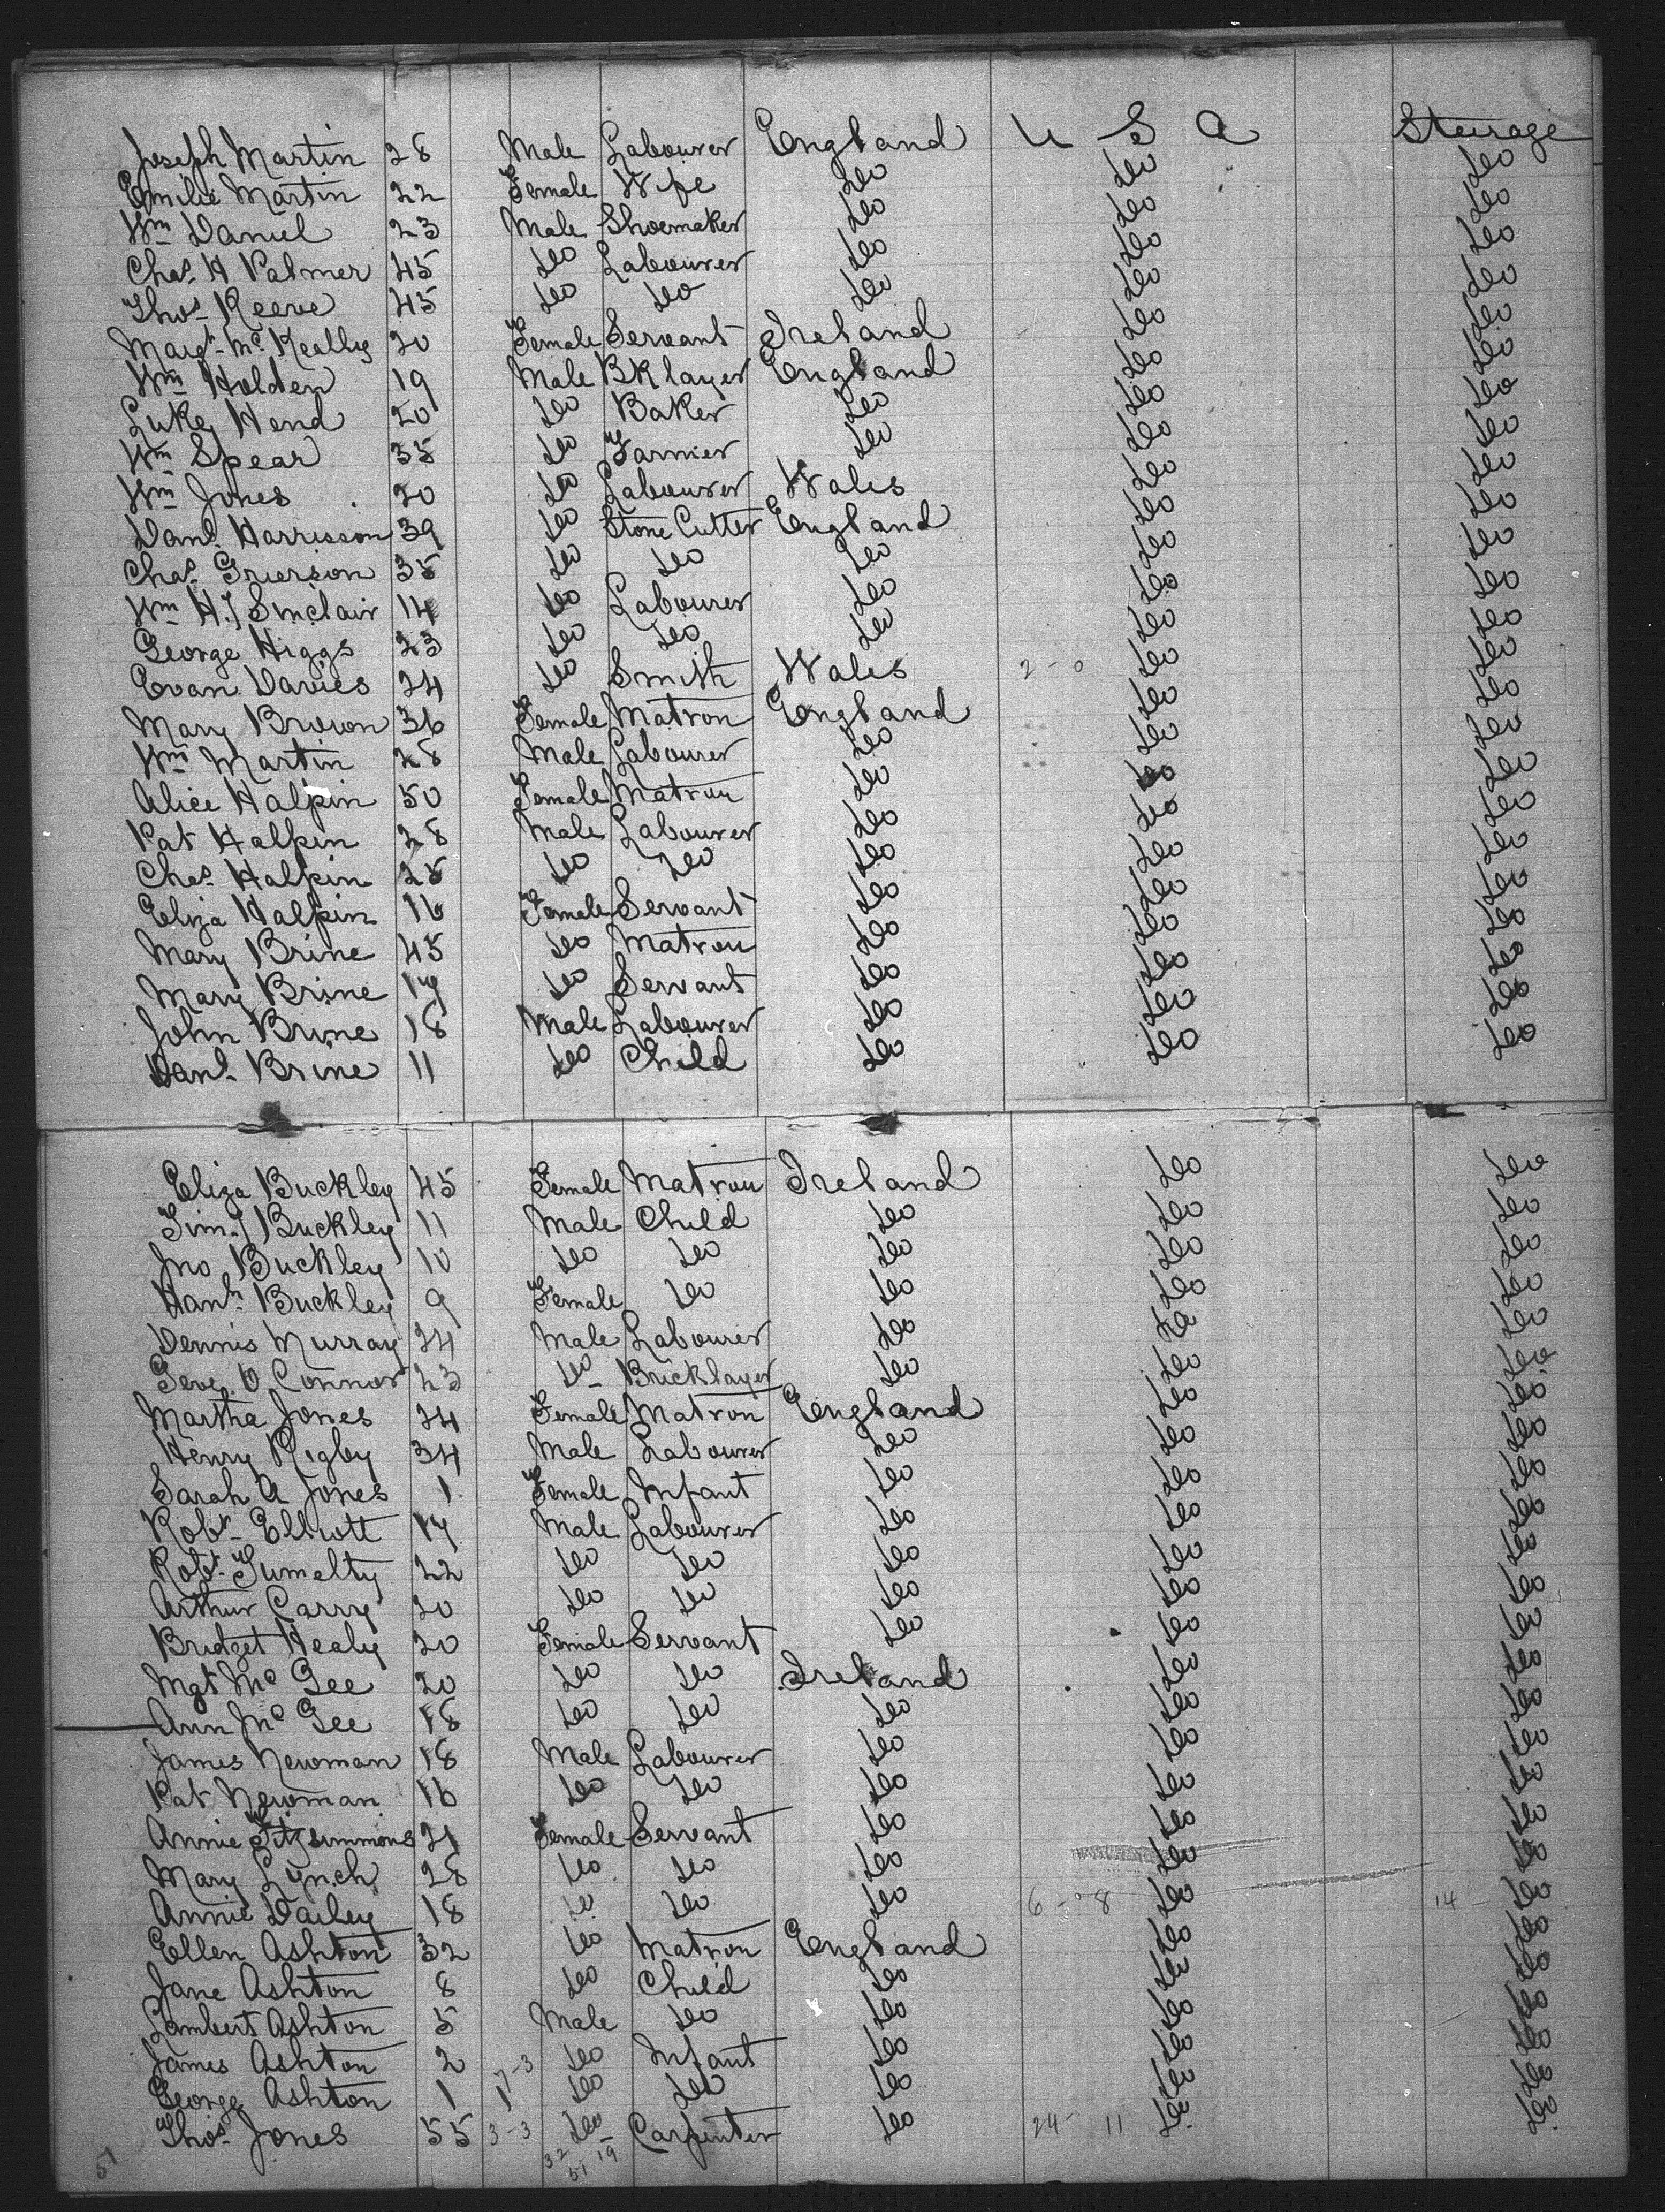 Joseph Martin 28 Male Labourer England U S A Steerage
Emilie Martin 22 Female Wife Do Do Do
Wm Daniel 23 Male Shoemaker Do Do Do
Chas. H Palmer 45 Do Labourer Do Do Do
Thos Reeve 45 Do Do Do Do Do
Margt Mc Keally 20 Female Servant Ireland Do Do
Wm Holden 19 Male BKlayer England Do Do
Luke Hend 20 Do Baker Do Do Do
Wm Spear 35 Do Farmer Do Do Do
Wm Jones 20 Do Labourer Wales Do Do
Danl. Harrisson 39 Do Stone Cutter England Do Do
Chas. Grierson 35 Do Do Do Do Do
Wm H. Sinclair 14 Do Labourer Do Do Do
George Higgs 23 Do Do Do Do Do
Evan Davies 24 Do Smith Wales 2 - 0 Do Do
Mary Brown 36 Female Matron England Do Do
Wm Martin 28 Male Labourer Do Do Do
Alice Halpin 50 Female Matron Do Do Do
Pat Halpin 28 Male Labourer Do Do Do
Chas. Halpin 25 Do Do Do Do Do
Eliza Halpin 16 Female Servant Do Do Do
Mary Brine 45 Do Matron Do Do Do
Mary Brine 19 Do Servant Do Do Do
John Brine 18 Male Labourer Do Do Do
Danl. Brine 11 Do Child Do Do Do
Eliza Buckley 45 Female Matron Ireland Do Do
Tim. Buckley 11 Male Child Do Do Do
Jno Buckley 10 Do Do Do Do Do
Hanh Buckley 9 Female Do Do Do Do
Dennis Murray 24 Male Labourer Do Do Do
O Connor 23 Do Bricklayer Do Do Do
Martha Jones 24 Female Matron England Do Do
Henry Rigby 34 Male Labourer Do Do Do
Sarah A Jones 1 Female Infant Do Do Do
Robt Elliott 17 Male Labourer Do Do Do
Robt. Tumelty 22 Do Do Do Do Do
Arthur Carry 20 Do Do Do Do Do
Bridget Healy 20 Female Servant Do Do Do
Mgt Mc Gee 20 Do Do Ireland Do Do
Ann Mc Gee 18 Do Do Do Do Do
James Newman 18 Male Labourer Do Do Do
Pat Newman 16 Do Do Do Do Do
Annie Fitzsimmons 21 Female Servant Do Do Do
Mary Lynch 28 Do Do Do Do Do
Annie Dailey 18 Do Do Do 6 - 8 Do 14 - Do
Ellen Ashton 32 Do Matron England Do Do
Jane Ashton 8 Do Child Do Do Do
Lambert Ashton 5 Male Do Do Do Do
James Ashton 2 7-3 Do Infant Do Do Do
George Ashton 1 1 Do Do Do Do Do
Thos. Jones 55 3-3 Do Carpenter Do 24 - 11 Do Do
51 32 19
51